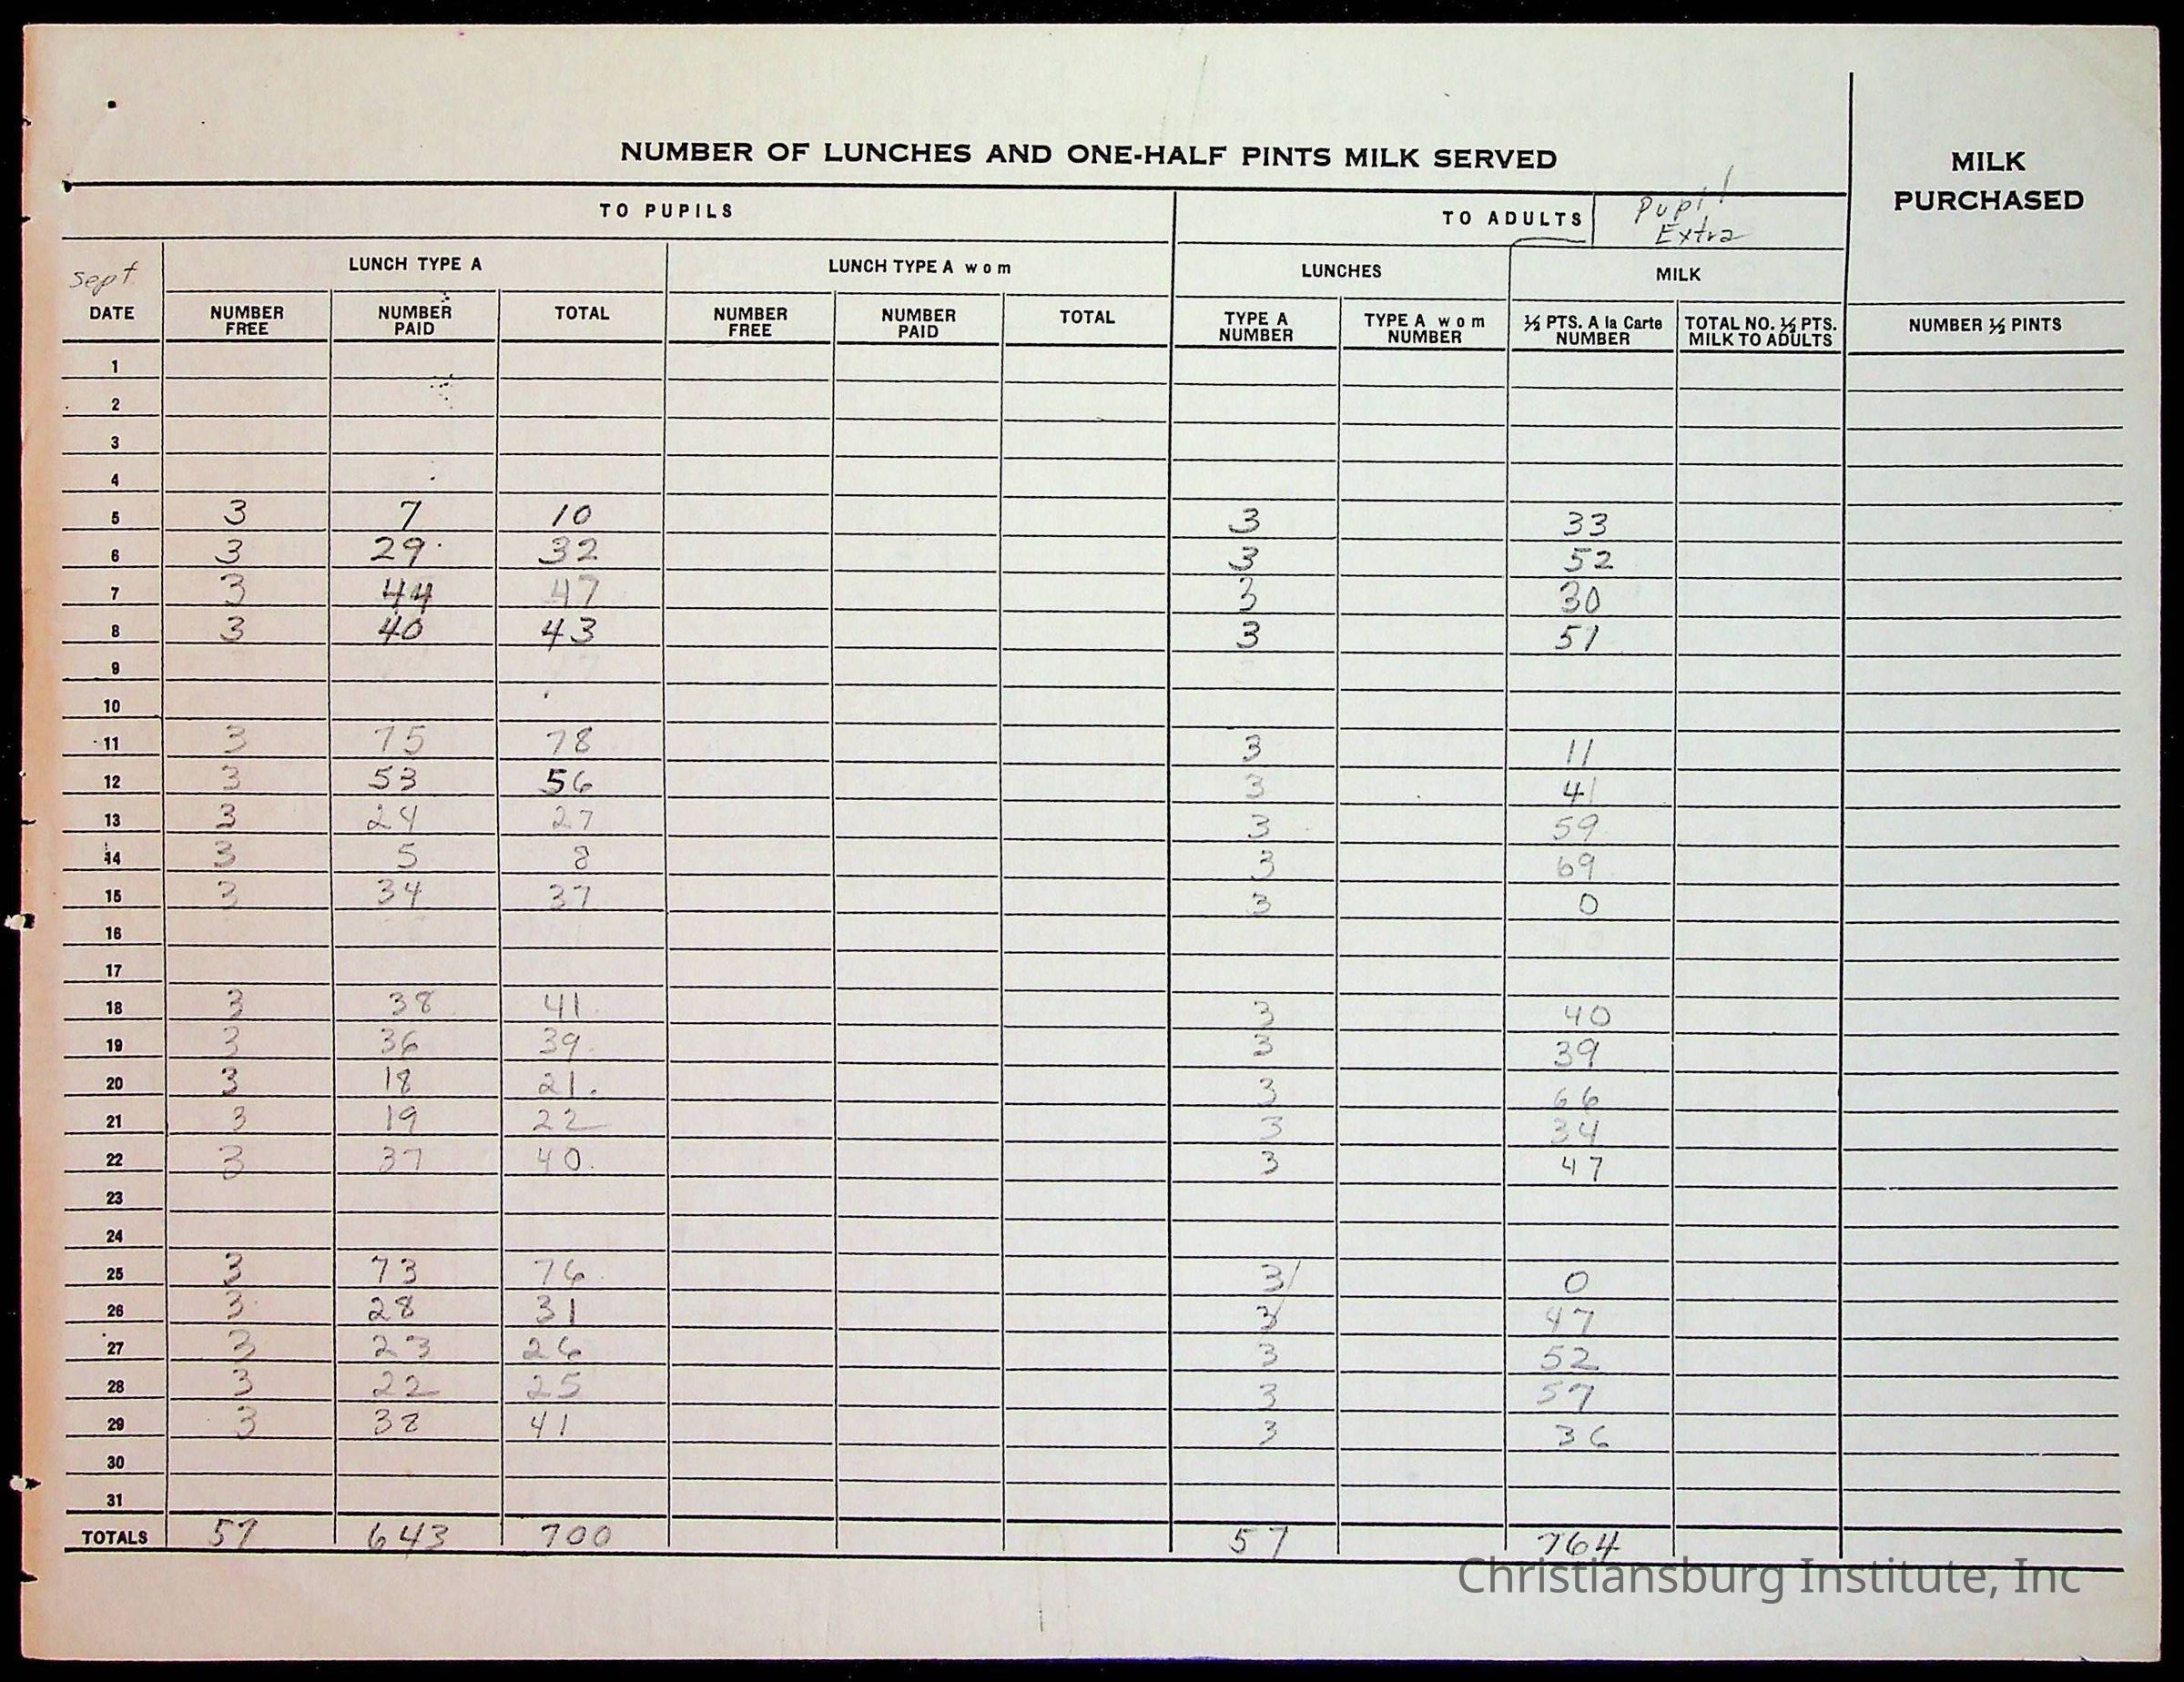 NUMBER OF LUNCHES AND ONE-HALF PINTS MILK SERVED
MILK PURCHASED
TO PUPILS TO ADULTS Pupil Extra
Sept. LUNCH TYPE A LUNCH TYPE A w o m LUNCHES MILK
DATE NUMBER FREE NUMBER PAID TOTAL NUMBER FREE NUMBER PAID TOTAL TYPE A NUMBER TYPE A w o m NUMBER ½ PTS. A la Carte NUMBER TOTAL NO. ½ PTS. MILK TO ADULTS NUMBER ½ PINTS
1
2
3
4
5 3 7 10 3 33
6 3 29 32 3 52
7 3 44 47 3 30
8 3 40 43 3 51
9
10
11 3 75 78 3 11
12 3 53 56 3 41
13 3 24 27 3 59
14 3 5 8 3 69
15 3 34 37 3 0
16
17
18 3 38 41 3 40
19 3 36 39 3 39
20 3 18 21 3 66
21 3 19 22 3 34
22 3 37 40 3 47
23
24
25 3 73 76 3 0
26 3 28 31 3 47
27 3 23 26 3 52
28 3 22 25 3 57
29 3 38 41 3 36
30
31
TOTALS 57 643 700 57 764
Christiansburg Institute, Inc